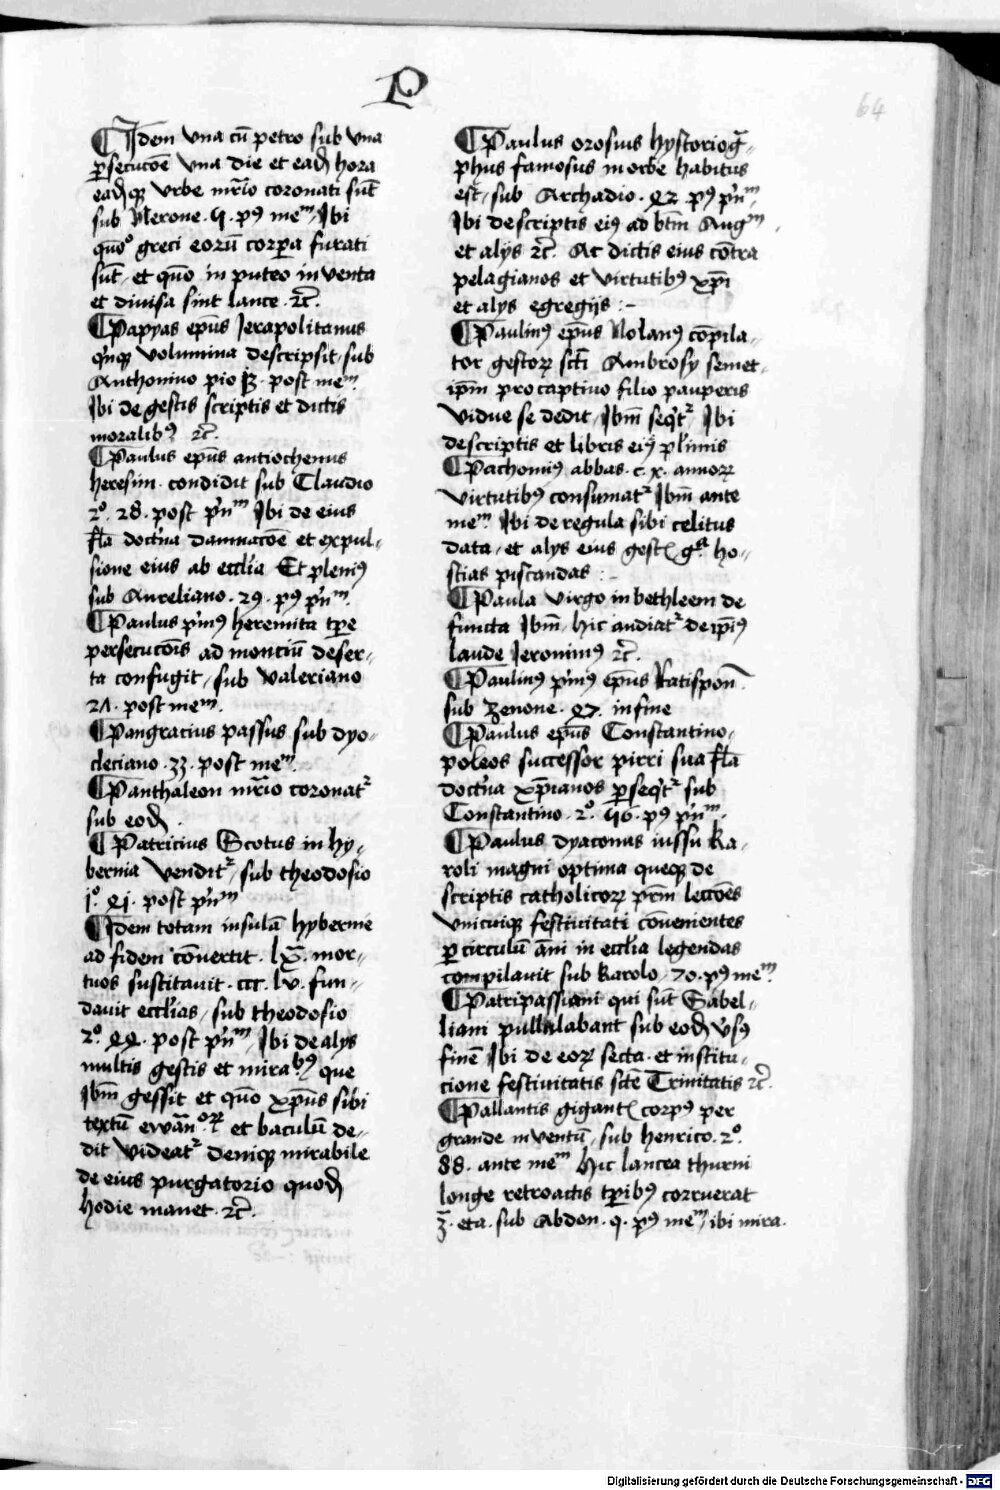 P
64
¶ Idem vna cū petro sub vna
ꝑsecucōe vna die et eadē hora
eadēqꝫ vrbe mr̄io coronati sūt
sub Nerone . 5 . pꝰ meᵐ, Ibi
quōᵒ greci eorū corꝑa furati
sūt, et quō in puteo inventa
et diuisa sint lance . ꝛc̄.
¶ Papyas ep̄us Jerapolitanus
qͥnqꝫ volumina descripsit, sub
Anthonino pio post meᵐ.
Ibi de gestis scriptis et dictis
moralibꝰ ꝛc̄.
¶ Paulus ep̄us antiochenus
heresim condidit sub Claudio
2ᵒ. 28. post pͥnᵐ Ibi de eius
fl̄a doctͥna damnacōe et expul-
sione eius ab eccl̄ia Et pleniꝰ
sub Aureliano . 29 . pꝰ pͥnᵐ.
¶ Paulus pͥmꝰ heremita tp̄e
persecucōis ad monciū deser-
ta confugit, sub valeriano
21 . post meᵐ.
¶ Pangracius passus sub dyo-
cleciano . 33 . post meᵐ.
¶ Panthaleon mr̄io coronatᷣ
sub eodē .
¶ Patricius Scotus in hy-
bernia venditᷣ, sub theodosio
jᵒ. 41. post pͥnᵐ
¶ Idem totam insulā hybernie
ad fidem cōuertit . lx̄. mor-
tuos suscitauit . ccc. lv. fun-
dauit eccl̄ias, sub theodosio
2ᵒ. 44. post pͥnᵐ, Ibi de alys
multis gestis et mirabꝰ que
Ibm̄ gessit et quō xp̄us sibi
textū ewan̄ᵒꝝ et baculū de-
dit videatᷣ deniqꝫ mirabile
de eius purgatorio quod
hodie manet . ꝛc̄.
¶ Paulus orosius hystoriog̃-
phus famosus in orbe habitus
est, sub Archadio . 42 pꝰ pͥnᵐ,
Ibi de scriptis eiꝰ ad btm̄ Augᵐ,
et alijs ꝛc̄. Ac dictis eius cōtra
pelagianos et virtutibꝰ xp̄i
et alys egregijs : -
¶ Paulinꝰ ep̄us Nolanꝰ cōpila-
tor gestoꝝ sct̄i Ambrosy semet-
ip̄m pro captiuo filio pauperis
vidue se dedit, Ibm̄ seqͥtᷣ, Ibi
de scriptis et libris eiꝰ pl̄imis
¶ Pachomiꝰ abbas . c. x. annoꝝ
virtutibꝰ consumatᷣ Ibm̄ ante
meᵐ Ibi de regula sibi celitus
data, et alys eius gest gᵃ ho-
stias piscandas : -
¶ Paula virgo in bethleem de
functa Ibm̄, hic audiatᷣ de ip̄iꝰ
laude Jeronimꝰ ꝛc̄.
¶ Paulinꝰ pͥmꝰ ep̄us Ratispon̄.
sub zenone . 47. in fine
¶ Paulus ep̄us Constantino-
poleos successor pirri sua fl̄a
doctͥna xp̄ianos ꝑseqͥtᷣ sub
Constantino . 2ᵒ. 56. pꝰ pͥnᵐ.
¶ Paulus dyaconus iussu Ka-
roli magni optima queqꝫ de
scriptis catholicoꝝ pr̄m lecc̄oes
vnicuiqꝫ festiuitati cōuenientes
ꝑ circulū an̄i in eccl̄ia legendas
compilauit sub karolo . 70. pꝰ meᵐ
¶ Patripassiani qui sūt Sabel-
liani pullulabant sub eodē vͥsꝰ
finē Ibi de eoꝝ secta . et institu-
cione festiuitatis scē Trinitatis ꝛc̄.
¶ Pallantis gigant corpꝰ per
grande inventū, sub henrico . 2ᵒ.
88. ante meᵐ hic lancea thurni
longe retroactis tp̄ibꝰ corruerat
3̄. eta. sub Abdon . 9. pꝰ meᵐ, ibi mira.
Digitalisierung gefördert durch die Deutsche Forschungsgemeinschaft - DFG